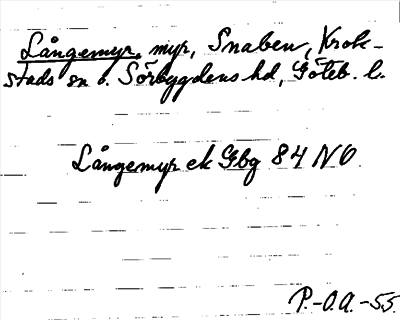 Långemyr, myr, Snaben, Krok-
stads sn o. Sörbygdens hd, Göteb. l.
Långemyr ek Gbg 84 NO
P.-O.A.-55.